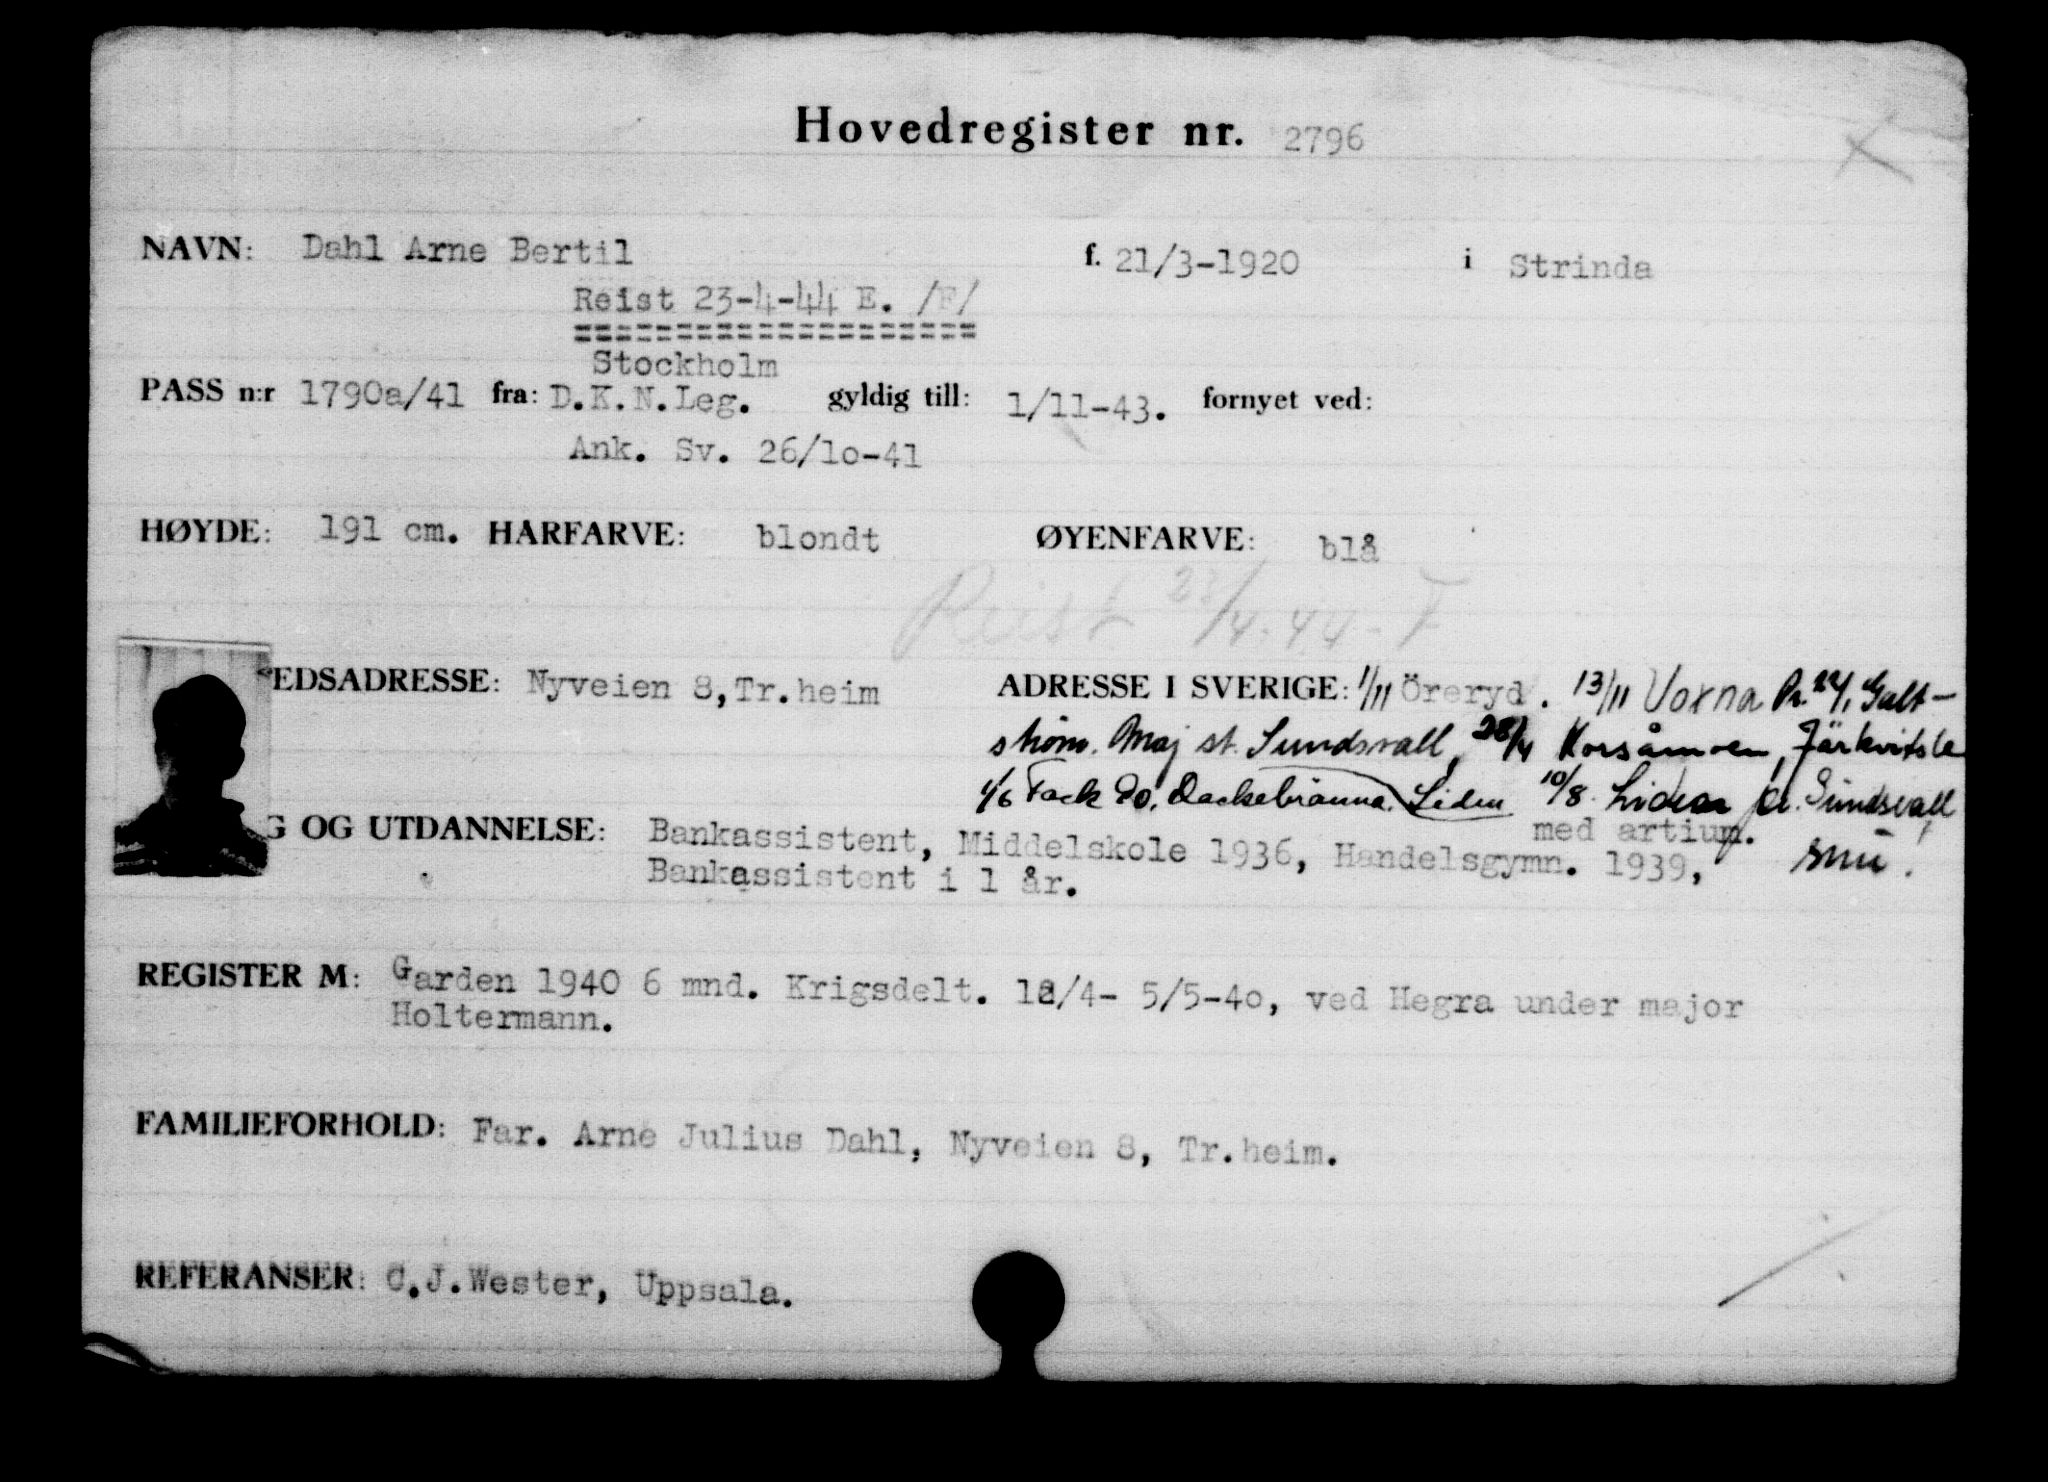 Hovedregister nr. 2796
NAVN: Dahl Arne Bertil f. 21/3-1920 i Strinda
Reist 23-4-44 E. /F/
====================
Stockholm
PASS n:r 1790a/41 fra: D.K.N.Leg. gyldig till: 1/11-43. fornyet ved:
Ank. Sv. 26/1o-41
HØYDE: 191 cm. HÅRFARVE: blondt ØYENFARVE: blå
Reist 23/4.44 - F
EDSADRESSE: Nyveien 8,Tr.heim ADRESSE I SVERIGE: 1/11 Öreryd. 13/11 Voxna Pr. 22/1 Galt-
ström. Maj st. Sundsvall, 28/4 Korsåmoen, Järkvitsle
1/6 Fack 20, Dackebränna. Liden 10/8. Liden pr. Sundsvall
G OG UTDANNELSE: Bankassistent, Middelskole 1936, Handelsgymn. 1939, med artium.
Bankassistent i 1 år.
REGISTER M: Garden 1940 6 mnd. Krigsdelt. /4- 5/5-4o, ved Hegra under major
Holtermann.
FAMILIEFORHOLD: Far. Arne Julius Dahl, Nyveien 8, Tr.heim.
REFERANSER: C.J.Wester, Uppsala.